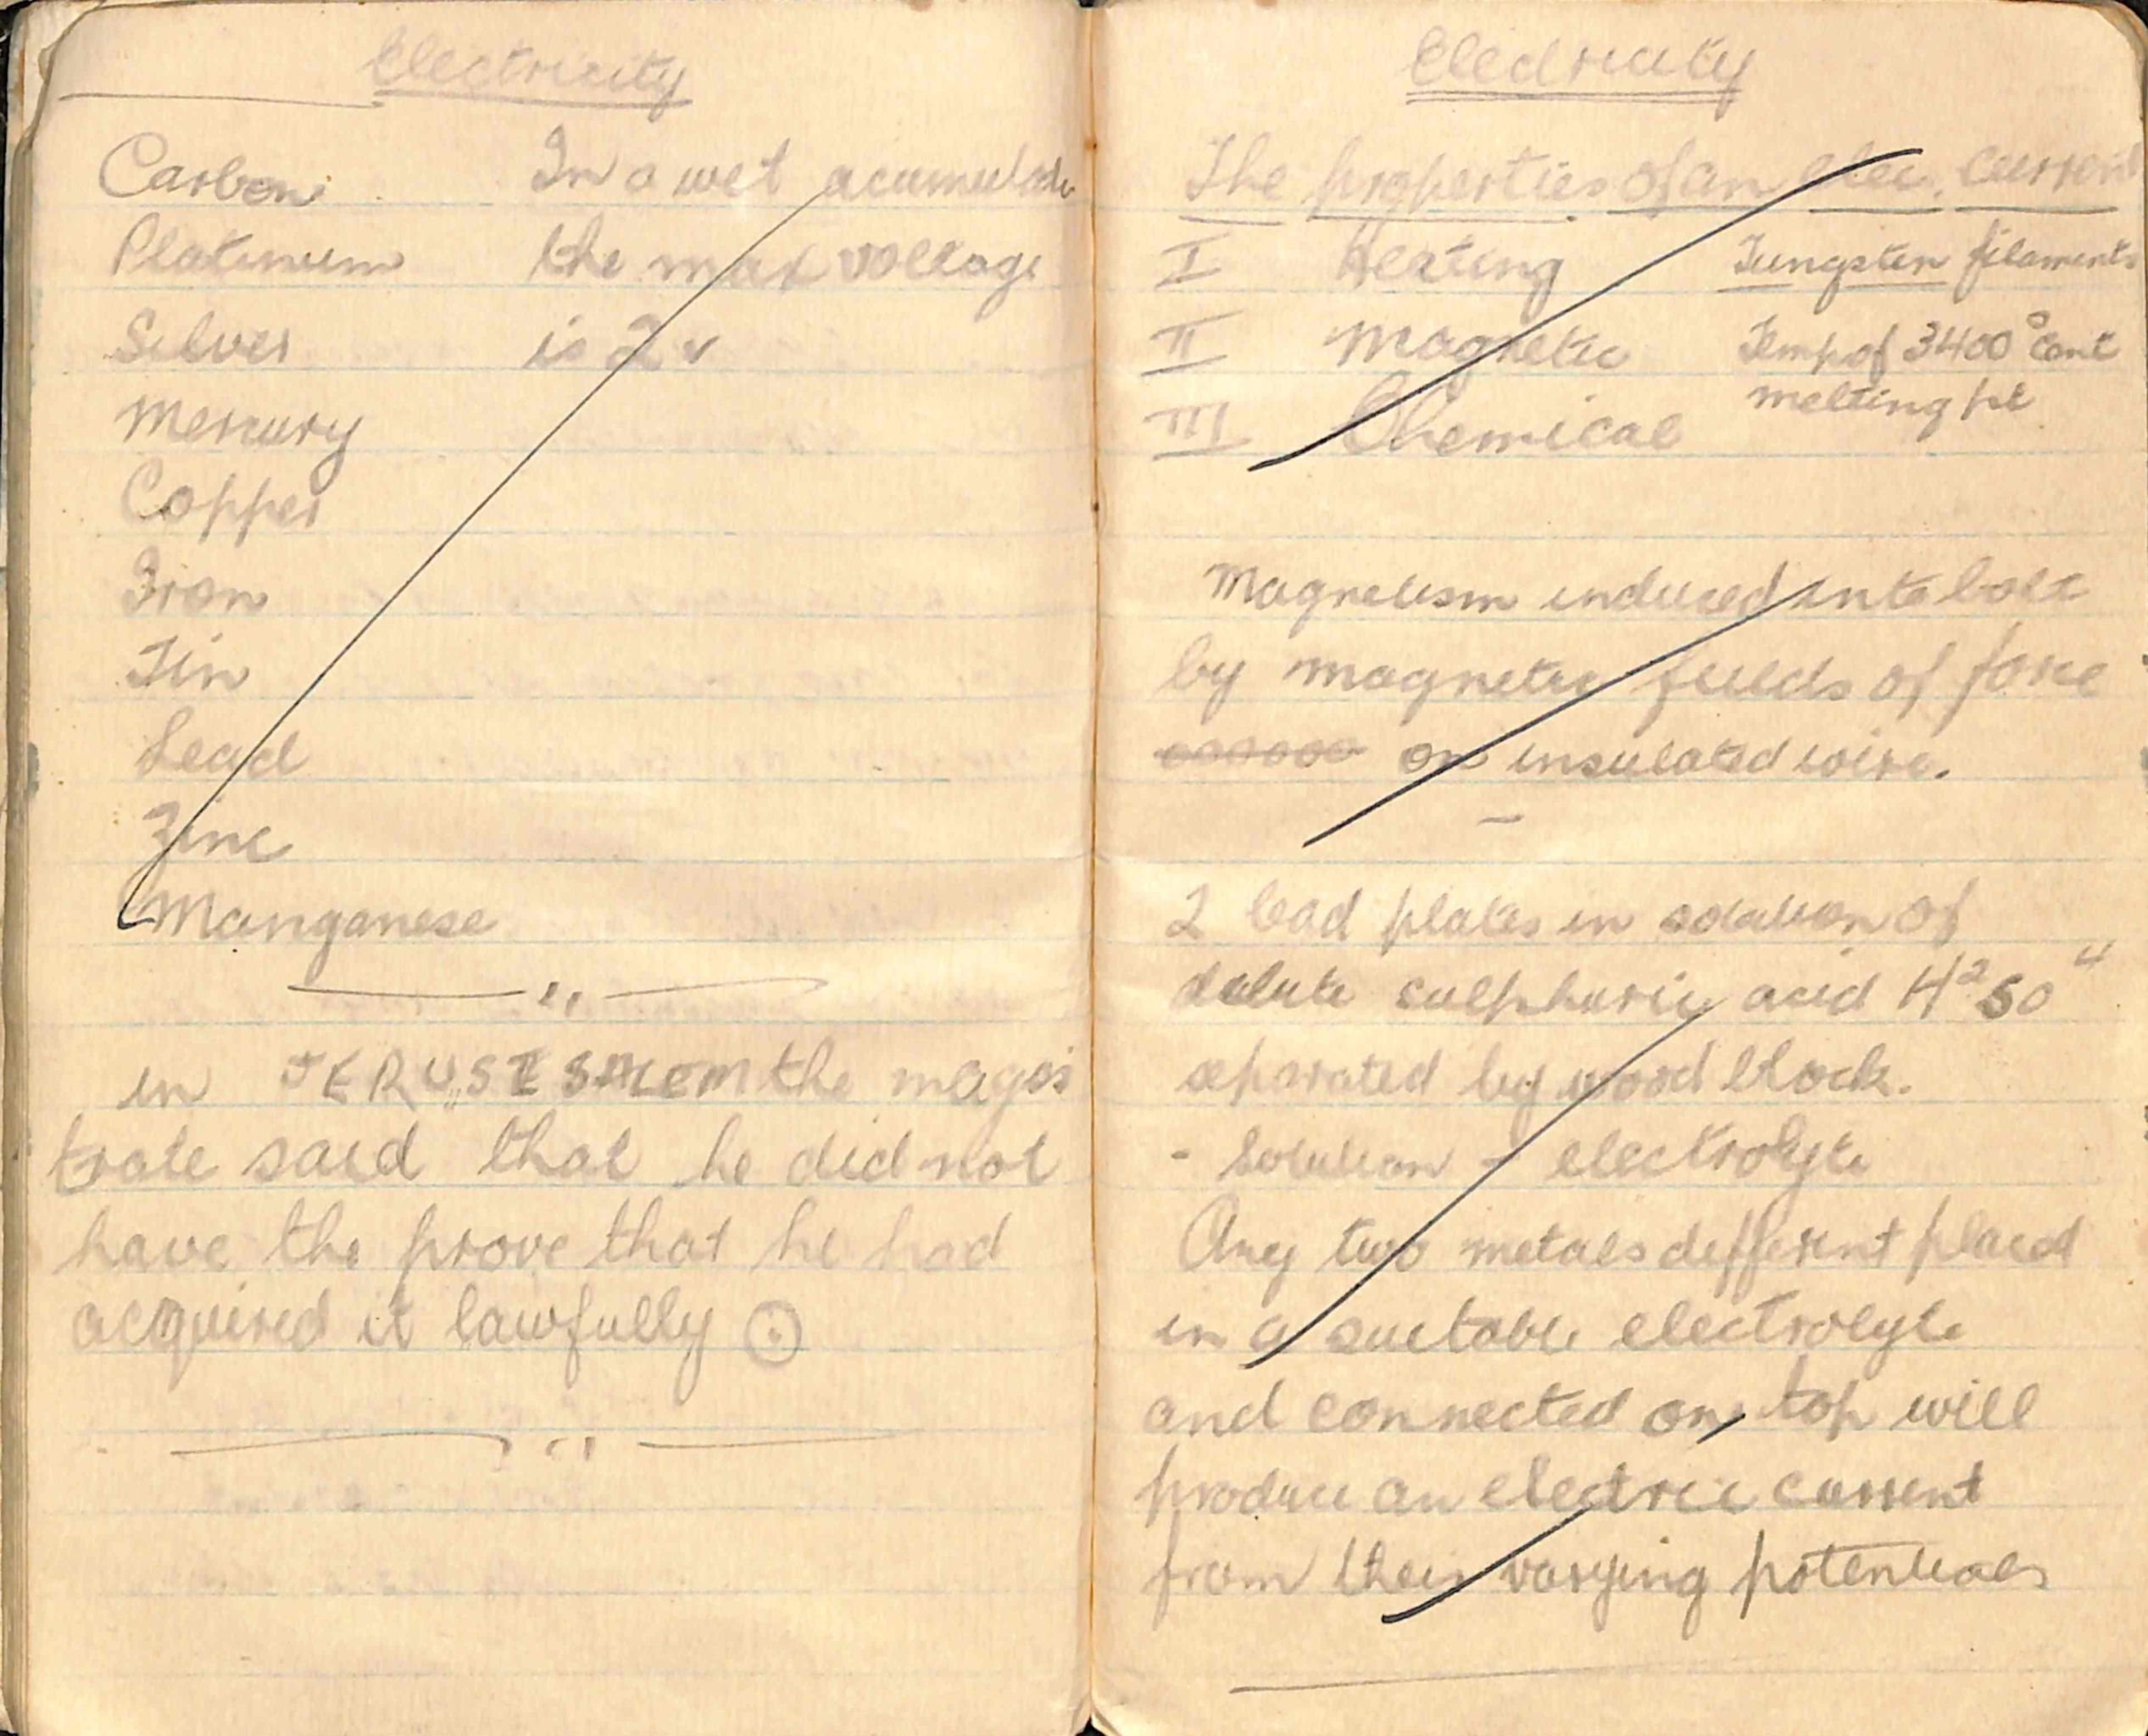 Electricity
Carbon
Platinum
Silver
Mercury
Copper
Iron
Tin
Lead
Zinc
Manganese
In a wet acumulator
the max voltage
is 2 v
in the magis
trate said that he did not
have the prove that he had
acquired it lawfully
Electricity
The properties of an elec. current
I Heating
II Magnetic
III Chemical
Tungsten filaments
Temp of 3400° Cent
melting pt
Magnetism induced into bolt
by magnetic fields of force
on insulated wire.
2 lead plates in solution of
dilute sulphuric acid H²SO⁴
separated by wood block.
- Solution - electrolyte
Any two metals different placed
in a suitable electrolyte
and connected on top will
produce an electric current
from their varying potentials